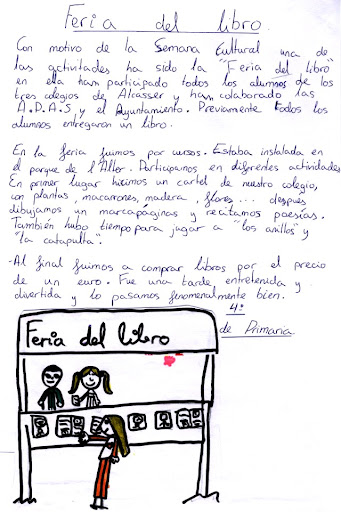 Feria del libro.
Con motivo de la Semana Cultural una de
las actividades ha sido la "Feria del libro"
en ella han participado todos los alumnos de los
tres colegios de Alcasser y han colaborado las
A.P.A.S y el Ayuntamiento. Previamente todos los
alumnos entregaron un libro.
En la feria fuimos por cursos. Estaba instalada en
el parque de l'Alter. Participamos en diferentes actividades
En primer lugar hicimos un cartel de nuestro colegio,
con plantas, macarrones, madera, flores... después
dibujamos un marcapáginas y recitamos poesías.
También hubo tiempo para jugar a "los anillos" y
"la catapulta".
-Al final fuimos a comprar libros por el precio
de un euro. Fue una tarde entretenida y
divertida y lo pasamos fenomenalmente bien.
4º
de Primaria
Feria del libro